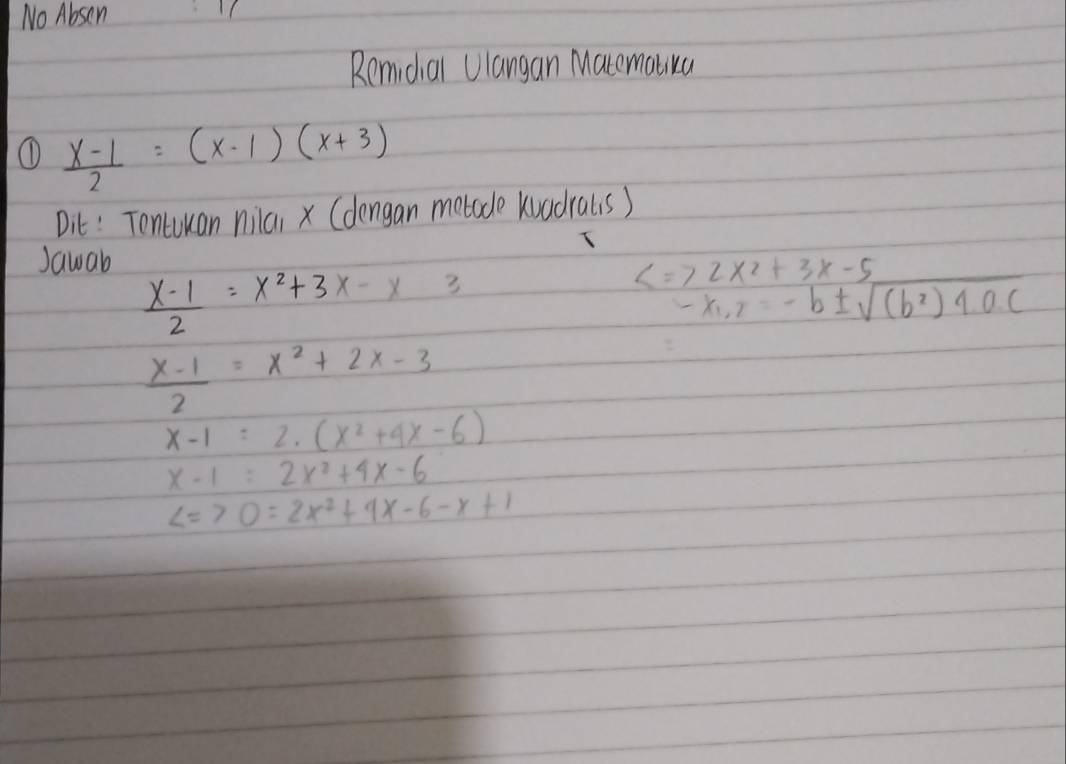 No Absen : 17
Remidial Ulangan Matematika
① x-1/2 = (x-1) (x+3)
Dit: Tentukan nilai x (dengan metode kuadratis)
Jawab
x-1/2 = x²+3x - x 3
x-1/2 = x² + 2x - 3
x-1 = 2. (x²+4x-6)
x-1 = 2x²+4x-6
<=> 0 = 2x²+4x-6-x+1
<=> 2x²+3x-5
- x₁,₂ = -b±√(b²) 4.a.c
=